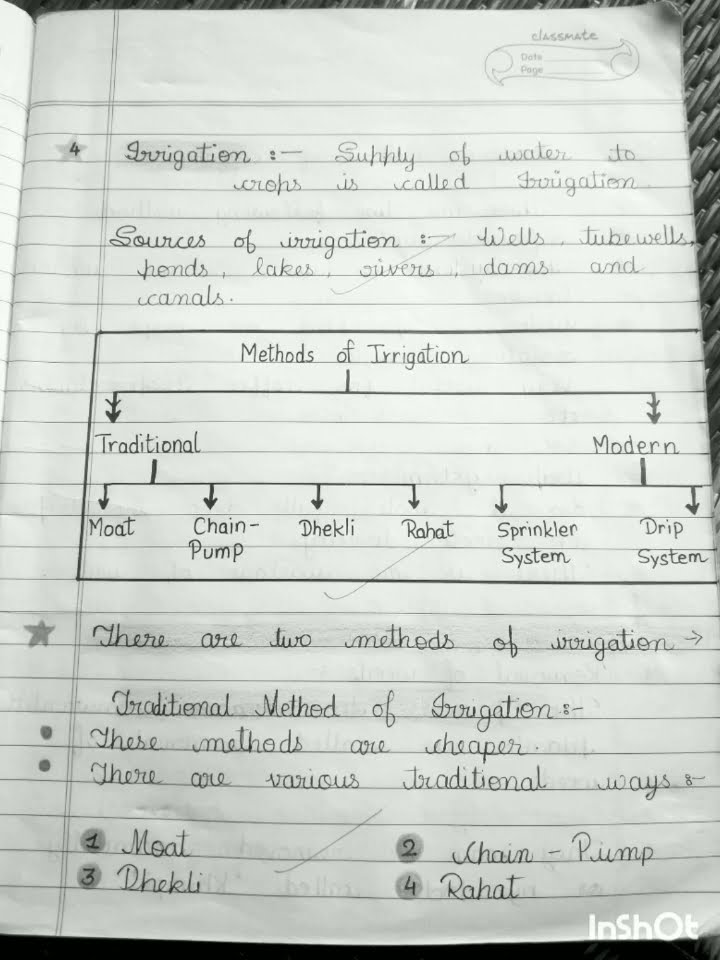 classmate
Date
Page
4 Irrigation :- Supply of water to
crops is called Irrigation.
Sources of irrigation :- Wells, tubewells,
ponds, lakes, rivers, dams and
canals.
Methods of Irrigation
Traditional Modern
Moat Chain- Dhekli Rahat Sprinkler Drip
Pump System System
There are two methods of irrigation →
Traditional Method of Irrigation :-
• These methods are cheaper.
• There are various traditional ways :-
1 Moat 2 Chain - Pump
3 Dhekli 4 Rahat
InShOt